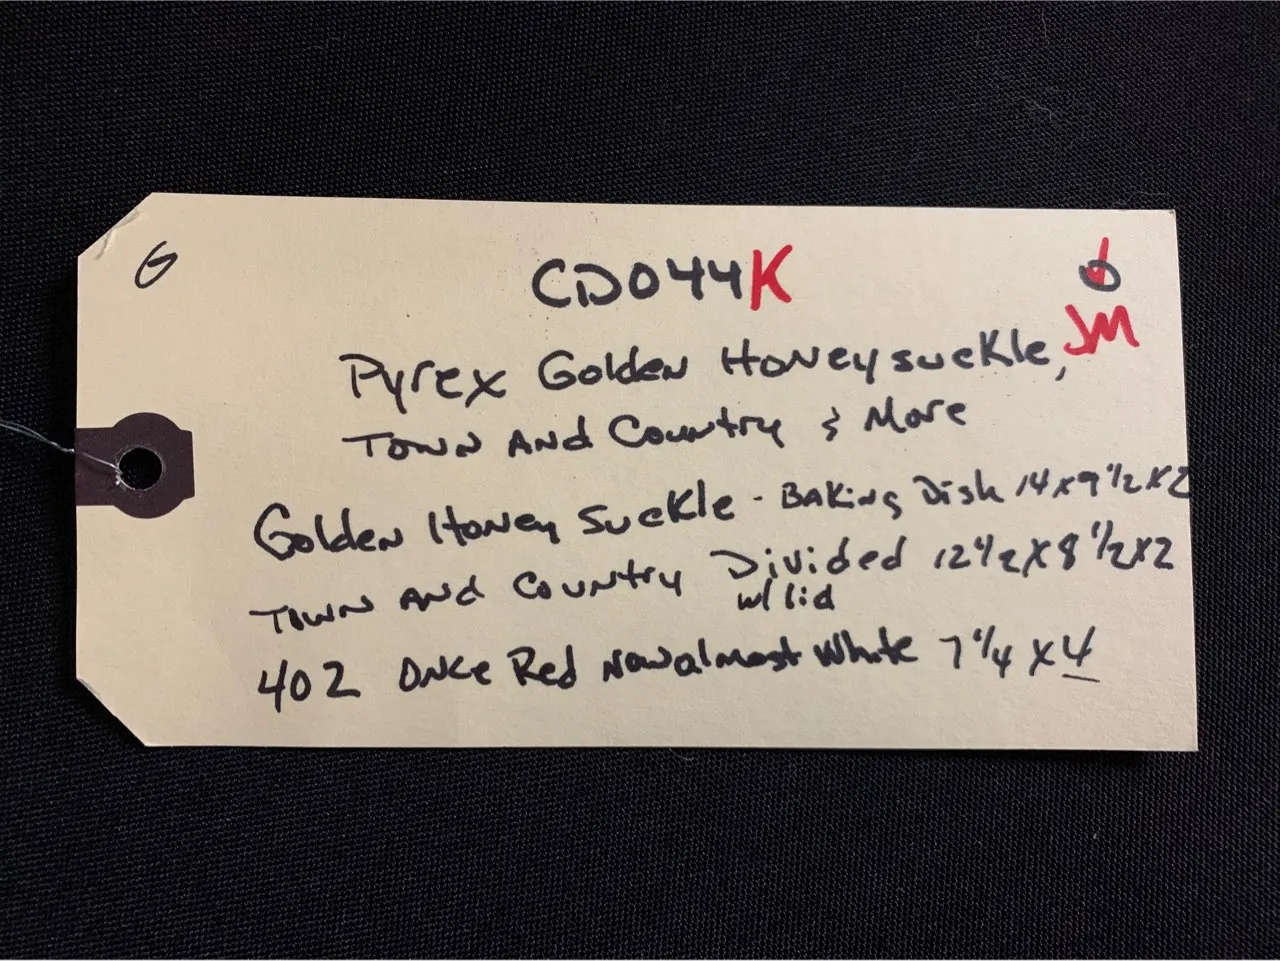 G CD044K 6
Pyrex Golden Honeysuckle, JM
Town And Country & More
Golden Honey Suckle - Baking Dish 14x9 1/2 x2
Town And Country Divided 12 1/2 x 8 1/2 x2
w/ lid
402 Once Red Now almost White 7 1/4 x 4